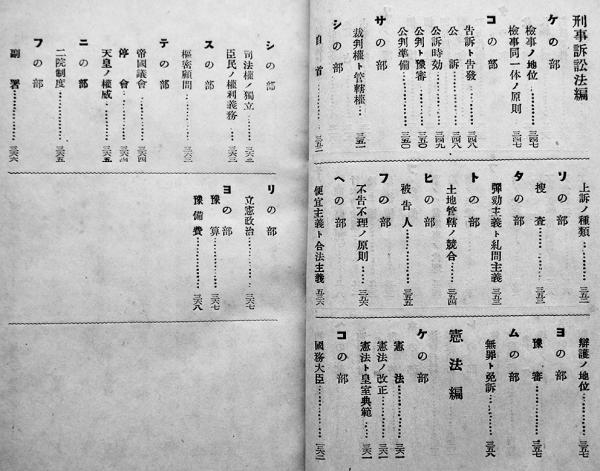 刑事訴訟法編
ケの部
檢事ノ地位………三四七
檢事同一体ノ原則………三四七
コの部
告訴ト告發………三四八
公訴………三四八
公訴時効………三四九
公判ト豫審………三五〇
公判準備………三五〇
サの部
裁判權ト管轄權………三五一
シの部
自首………三五一
上訴ノ種類………三五二
ソの部
捜査………三五二
タの部
彈劾主義ト糺問主義………三五三
トの部
土地管轄ノ競合………三五四
ヒの部
被告人………三五五
フの部
不告不理ノ原則………三五六
ヘの部
便宜主義ト合法主義………三五六
辯護ノ地位………三五七
ヨの部
豫審………三五七
ムの部
無罪ト免訴………三五八
憲法編
ケの部
憲法………三六一
憲法ノ改正………三六一
憲法ト皇室典範………三六一
コの部
國務大臣………三六二
シの部
司法權ノ獨立………三六二
臣民ノ權利義務………三六三
スの部
樞密顧問………三六三
テの部
帝國議會………三六四
停會………三六四
天皇ノ權威………三六五
ニの部
二院制度………三六五
フの部
副署………三六六
リの部
立憲政治………三六七
ヨの部
豫算………三六七
豫備費………三六八